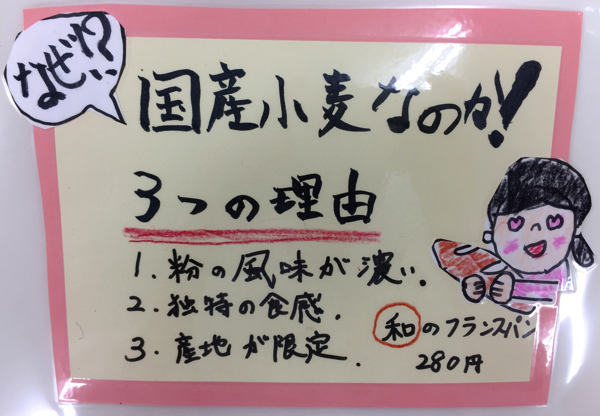 なぜ!?
国産小麦なのか!
3つの理由
1. 粉の風味が濃い.
2. 独特の食感.
3. 産地が限定.
和のフランスパン
280円